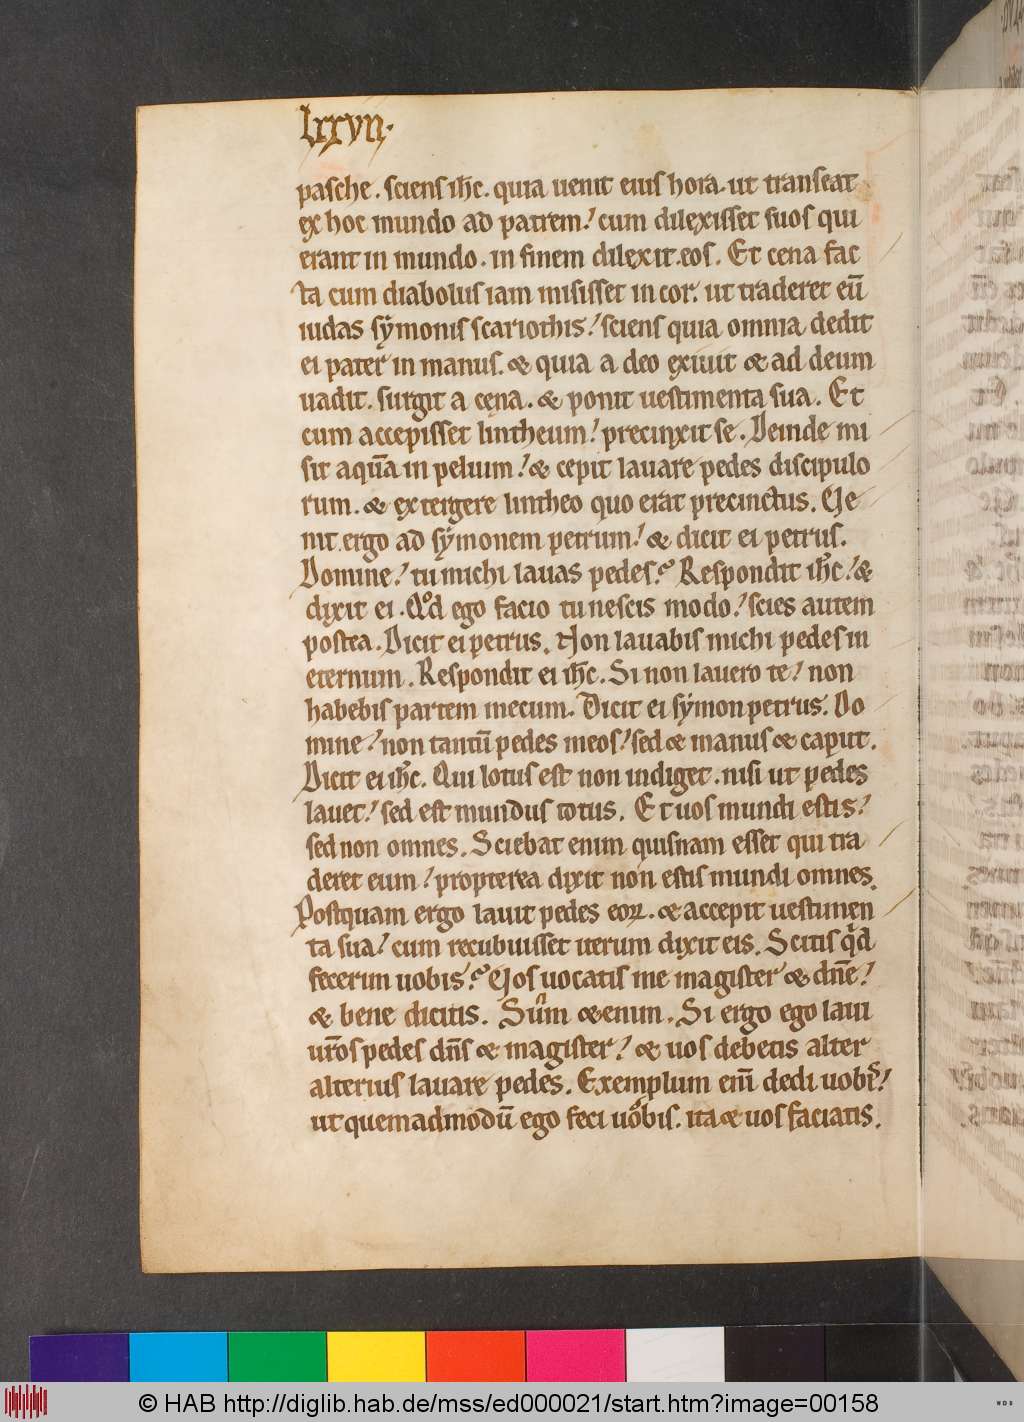 lxxvii.
pasche. sciens ihc. quia uenit eius hora. ut transeat
ex hoc mundo ad patrem! cum dilexisset suos qui
erant in mundo. in finem dilexit eos. Et cena fac
ta cum diabolus iam misisset in cor. ut traderet eū
iudas sẏmonis scariothis! sciens quia omnia dedit
ei pater in manus. & quia a deo exiuit & ad deum
uadit. surgit a cena. & ponit uestimenta sua. Et
cum accepisset lintheum! precinxit se. Deinde mi
sit aquā in peluim! & cepit lauare pedes discipulo
rum. & extergere lintheo quo erat precinctus. Ue
nit ergo ad sẏmonem petrum! & dicit ei petrus.
Domine! tu michi lauas pedes? Respondit ihc! &
dixit ei. Qͦd ego facio tu nescis modo! scies autem
postea. Dicit ei petrus. Non lauabis michi pedes in
eternum. Respondit ei ihc. Si non lauero te! non
habebis partem mecum. Dicit ei sẏmon petrus. Do
mine! non tantū pedes meos! sed & manus & caput.
Dicit ei ihc. Qui lotus est non indiget. nisi ut pedes
lauet! sed est mundus totus. Et uos mundi estis!
sed non omnes. Sciebat enim quisnam esset qui tra
deret eum! propterea dixit non estis mundi omnes.
Postquam ergo lauit pedes eoꝝ. & accepit uestimen
ta sua! cum recubuisset iterum dixit eis. Scitis qͥd
fecerim uobis? Uos uocatis me magister & dn̄e!
& bene dicitis. Sum & enim. Si ergo ego laui
ur̄os pedes dn̄s & magister! & uos debetis alter
alterius lauare pedes. Exemplum eni̅ dedi uobis!
ut quemadmodū ego feci uobis. ita & uos faciatis.
© HAB http://diglib.hab.de/mss/ed000021/start.htm?image=00158